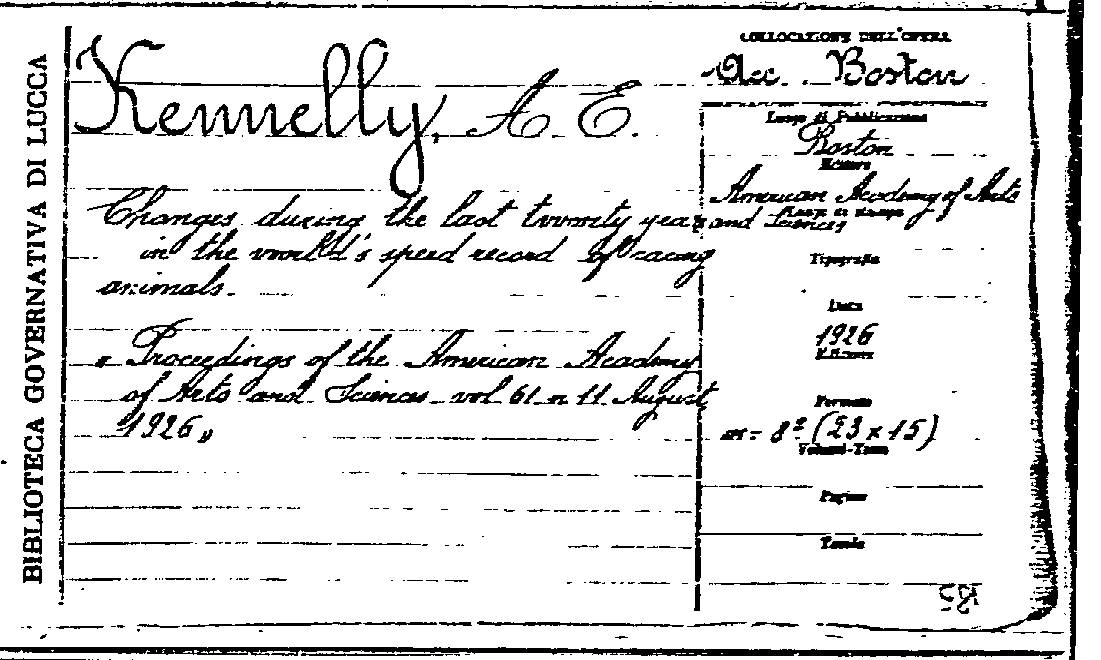 BIBLIOTECA GOVERNATIVA DI LUCCA
Kennelly, A. E.
Changes during the last twenty years
in the world's speed record of racing
animals.
" Proceedings of the American Academy
of Arts and Sciences vol 61 n 11 August
1926 "
COLLOCAZIONE DELL'OPERA
Acc. Boston
Luogo di Pubblicazione
Boston
Editore
American Academy of Arts
and Sciences
Luogo di stampa
Tipografia
Data
1926
Edizione
Formato
in- 8º (23 x 15)
Volumi-Tomi
Pagine
Tavole